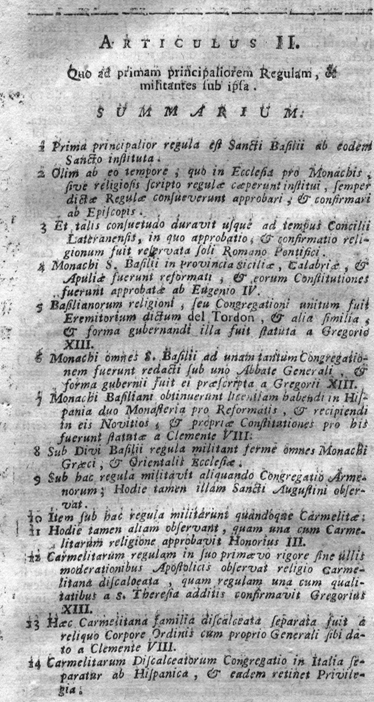 ARTICULUS II.
Quo ad primam principaliorem Regulam, &
militantes sub ipsa.
SUMMARIUM:
1 Prima principalior regula est Sancti Basilii ab eodem
Sancto instituta.
2 Olim ab eo tempore, quo in Ecclesia pro Monachis,
sive religiosis scripto regulæ cæperunt institui, semper
dictæ Regulæ consueverunt approbari, & confirmari
ab Episcopis.
3 Et talis consuetudo duravit usque ad tempus Concilii
Lateranensis, in quo approbatio, & confirmatio reli-
gionum fuit reservata soli Romano Pontifici.
4 Monachi S. Basilii in provincia Siciliæ, Calabriæ, &
Apuliæ fuerunt reformati, & eorum Constitutiones
fuerunt approbatæ ab Eugenio IV.
5 Basilianorum religioni, seu Congregationi unitum fuit
Eremitorium dictum del Tordon, & alia similia,
& forma gubernandi illa fuit statuta a Gregorio
XIII.
6 Monachi omnes S. Basilii ad unam tantum Congregatio-
nem fuerunt redacti sub uno Abbate Generali, &
forma gubernii fuit ei præscripta a Gregorii XIII.
7 Monachi Basiliani obtinuerunt licentiam habendi in His-
pania duo Monasteria pro Reformatis, & recipiendi
in eis Novitios, & propriæ Constitutiones pro his
fuerunt statutæ a Clemente VIII.
8 Sub Divi Basilii regula militant ferme omnes Monachi
Græci, & Orientalis Ecclesiæ.
9 Sub hac regula militavit aliquando Congregatio Arme-
norum; Hodie tamen illam Sancti Augustini obser-
vat.
10 Item sub hac regula militarunt quandoque Carmelitæ:
11 Hodie tamen aliam observant, quam una cum Carme-
litarum religione approbavit Honorius III.
12 Carmelitarum regulam in suo primævo rigore sine ullis
moderationibus Apostolicis observat religio Carme-
litana discalceata, quam regulam una cum quali-
tatibus a S. Theresia additis confirmavit Gregorius
XIII.
13 Hæc Carmelitana familia discalceata separata fuit a
reliquo Corpore Ordinis cum proprio Generali sibi da-
to a Clemente VIII.
14 Carmelitarum Discalceatorum Congregatio in Italia se-
paratur ab Hispanica, & eadem retinet Privile-
gia: